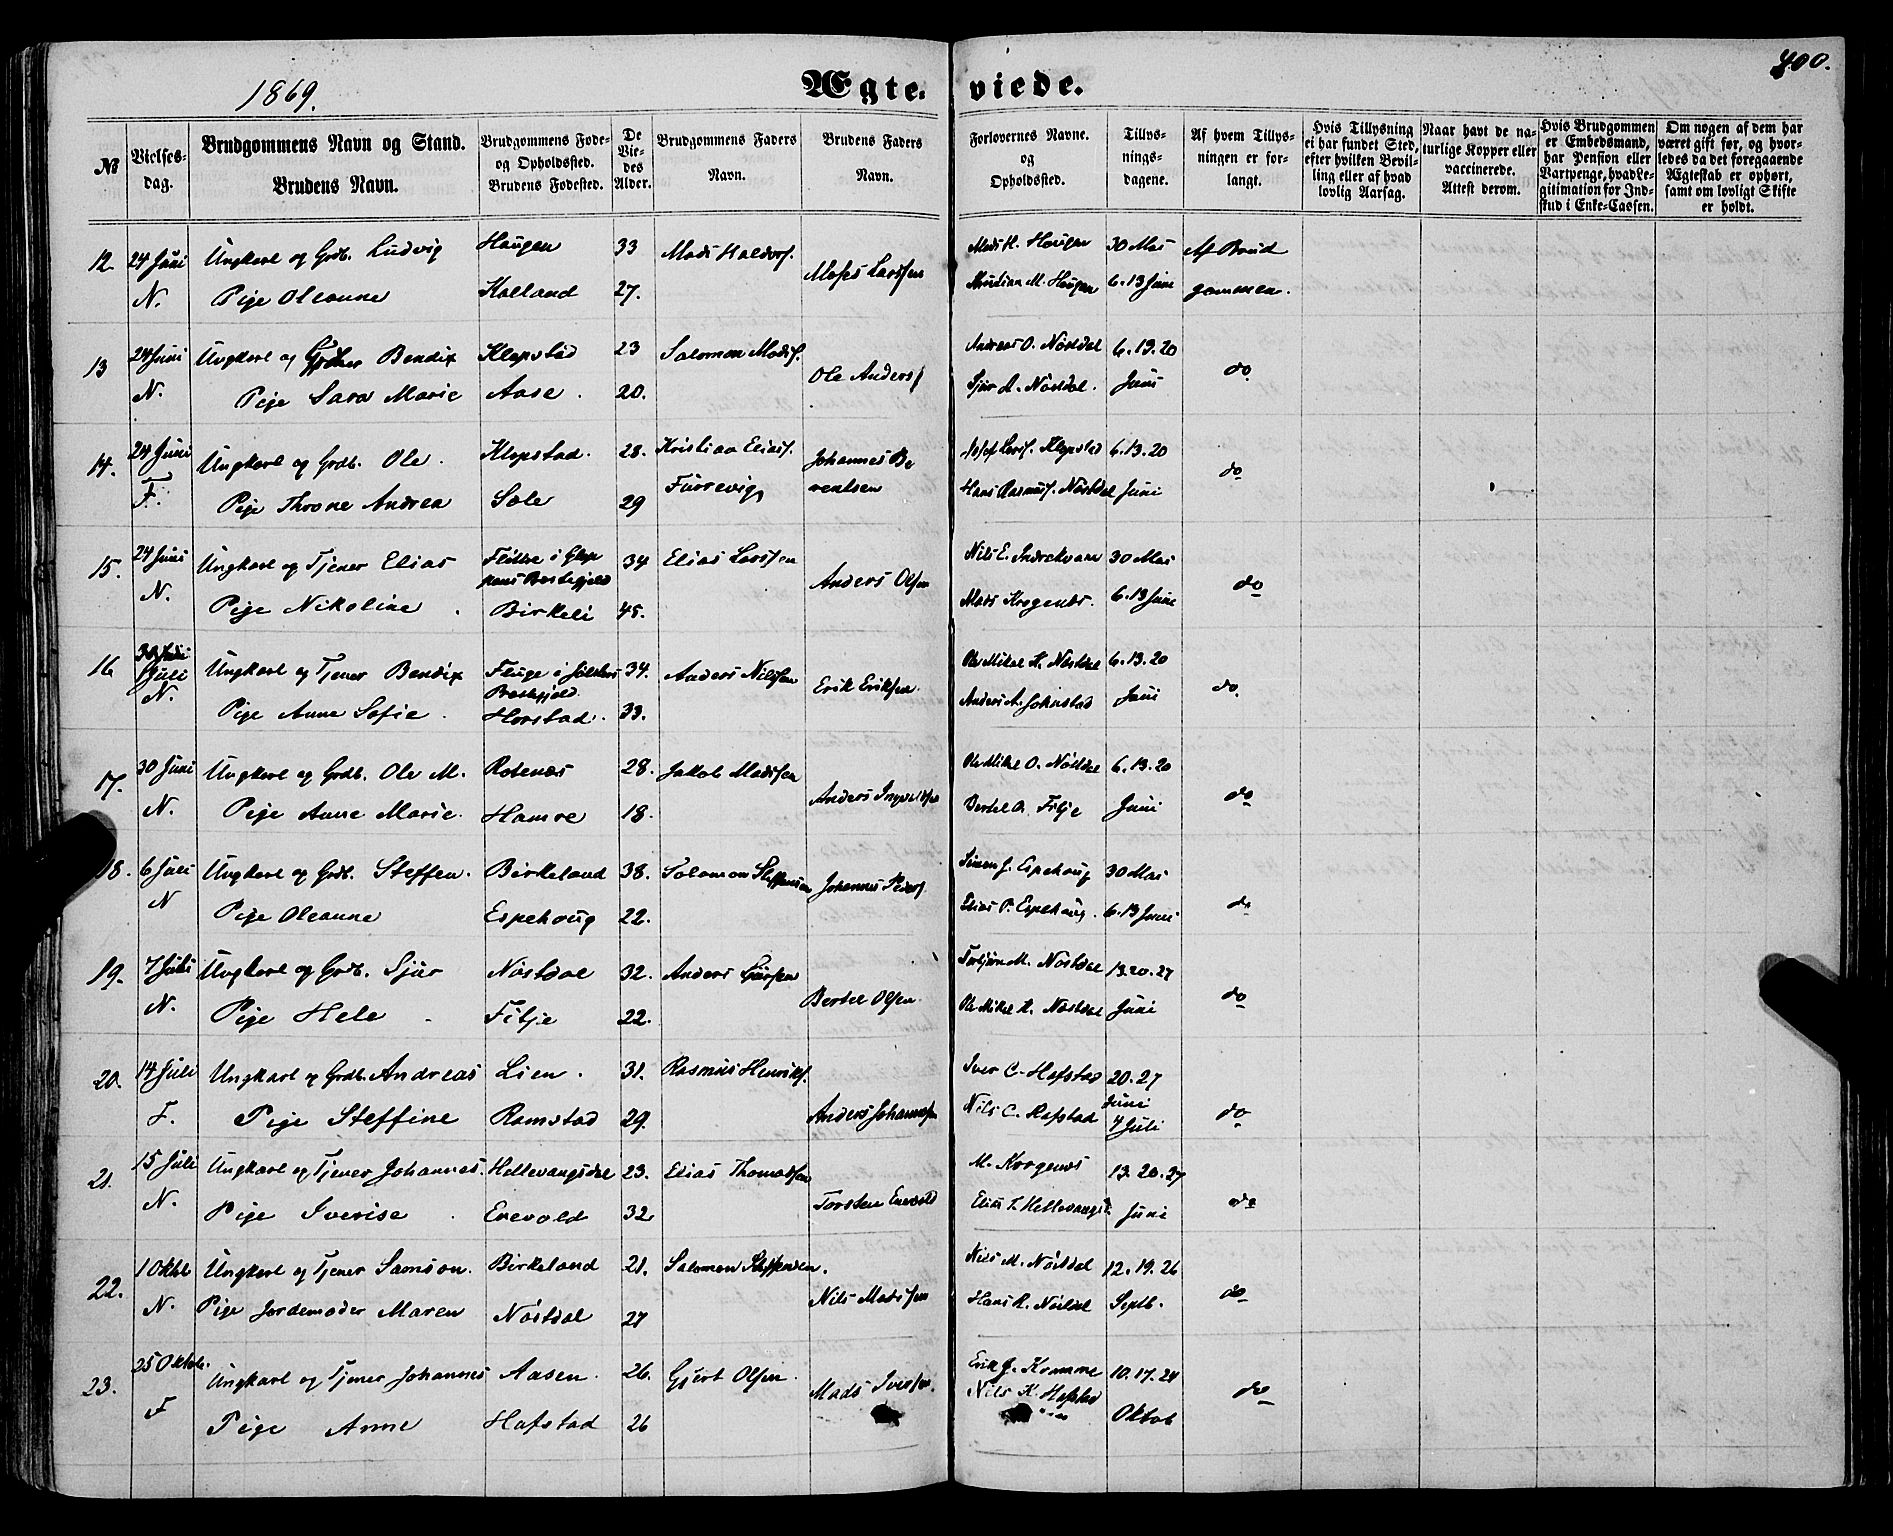 1869.
Ægte-
viede.
400.
№
Vielses-
dag.
Brudgommens Navn og Stand.
Brudens Navn.
Brudgommens Føde-
og Opholdssted.
Brudens Fødested.
De
Vie-
des
Alder.
Brudgommens Faders
Navn.
Brudens Faders
Navn.
Forlovernes Navne.
og
Opholdssted.
Tillys-
nings-
dagene.
Af hvem Tillys-
ningen er for-
langt.
Hvis Tillysning
ei har fundet Sted,
efter hvilken Bevil-
ling eller af hvad
lovlig Aarsag.
Naar havt de na-
turlige Kopper eller
vaccinerede.
Attest derom.
Hvis Brudgommen
er Embedsmand,
har Pension eller
Vartpenge, hvad Le-
gitimation for Ind-
skud i Enke-Cassen.
Om nogen af dem har
været gift før, og hvor-
ledes da det foregaaende
Ægteskab er ophørt,
samt om lovligt Skifte
er holdt.
12. 24 Juni Ungkarl og Grdb. Ludvig Haugen 33 Mads Haldors. Mads H. Haugen 30 Mai Af Brud
N. Pige Oleanne Kalland 27. Moses Larssen Kristian M. Haugen 6.13 Juni gommen.
13 24 Juni Ungkarl og Bendix Klopstad 23 Salomon Mads. Andreas O. Nøstdal 6.13.20
N. Pige Sara Marie Aase. 20. Ole Anders. Sjur A. Nøstdal. Juni do
14. 24 Juni Ungkarl og Grdb. Ole. Klopstad. 28. Kristian Elias. Johannes Be Lars. Klopstad 6.13.20
F. Pige Throne Andrea Sole 29 Furrevig rentsen Hans Rasmus. Nøstdal Juni do
15. 24 Juni Ungkarl og Tjener Elias Flølle i Glop 34 Elias Larssen Nils E. Indrekvam 30 Mai
pens Prestegjeld
N. Pige Nikoline. Birkeli 45. Anders Olsen Mads Krogenæs. 6.13 Juni do
16 1 Juli Ungkarl og Tjener Bendix Fluge i Jølsters 34. Anders Nilssen Ole Mikel H. Nøstdal 6.13.20
Prestgjeld
N. Pige Anne Sofie. Horstad. 33. Erik Eriksen. Anders A. Johnstad Juni do.
17. 30 Juni Ungkarl og Grdb. Ole M. Rotenæs 28. Jakob Madssen Ole Mikel O. Nøstdal 6.13.20
N. Pige Anne Marie. Hamre 18. Anders Bertel O. Fitje Juni do
18. 6 Juli Ungkarl og Grdb. Steffen. Birkeland 38. Solomon Steffensen Simon J. Espehoug 30 Mai
N Pige Oleanne Espehoug 22. Johannes Peders. Elias P. Espehoug. 6.13 Juni do
19. 7 Juli Ungkarl og Grdb. Sjur Nøstdal 32. Anders Sjursen Torbjørn M. Nøstdal 13.20.27
N. Pige Hele. Fitje 22. Bertel Olsen. Ole Mikel H. Nøstdal Juni do
20. 14 Juli Ungkarl og Grdb. Andreas Lien. 31. Rasmus Henriks. Iver C. Hafstad 20.27
F. Pige Steffine Ramstad 29. Anders Johannesen Nils C. Hafstad Juni 4 Juli do
21. 15 Juli Ungkarl og Tjener Johannes. Hellevangsdal 23. Elias Thomassen M. Krogenæs 13.20.27
N. Pige Iverise. Enevold 32 Torsten Enevold Elias T. Hellevangsd. Juni do
22. 1 Oktb Ungkarl og Tjener Samson. Birkeland 21. Salomon Steffensen. Nils M. Nøstdal 12.19.26
N. Pige Jordemoder Maren Nøstdal 27 Nils Madssen Hans R. Nøstdal Septb. do
23. 25 Oktob. Ungkarl og Tjener Johannes Aasen. 26. Gjert Olsen. Erik J. Kramme 10.17.24
F Pige Anne Hafstad 26 Mads Iversen. Nils K. Hafstad Oktob do